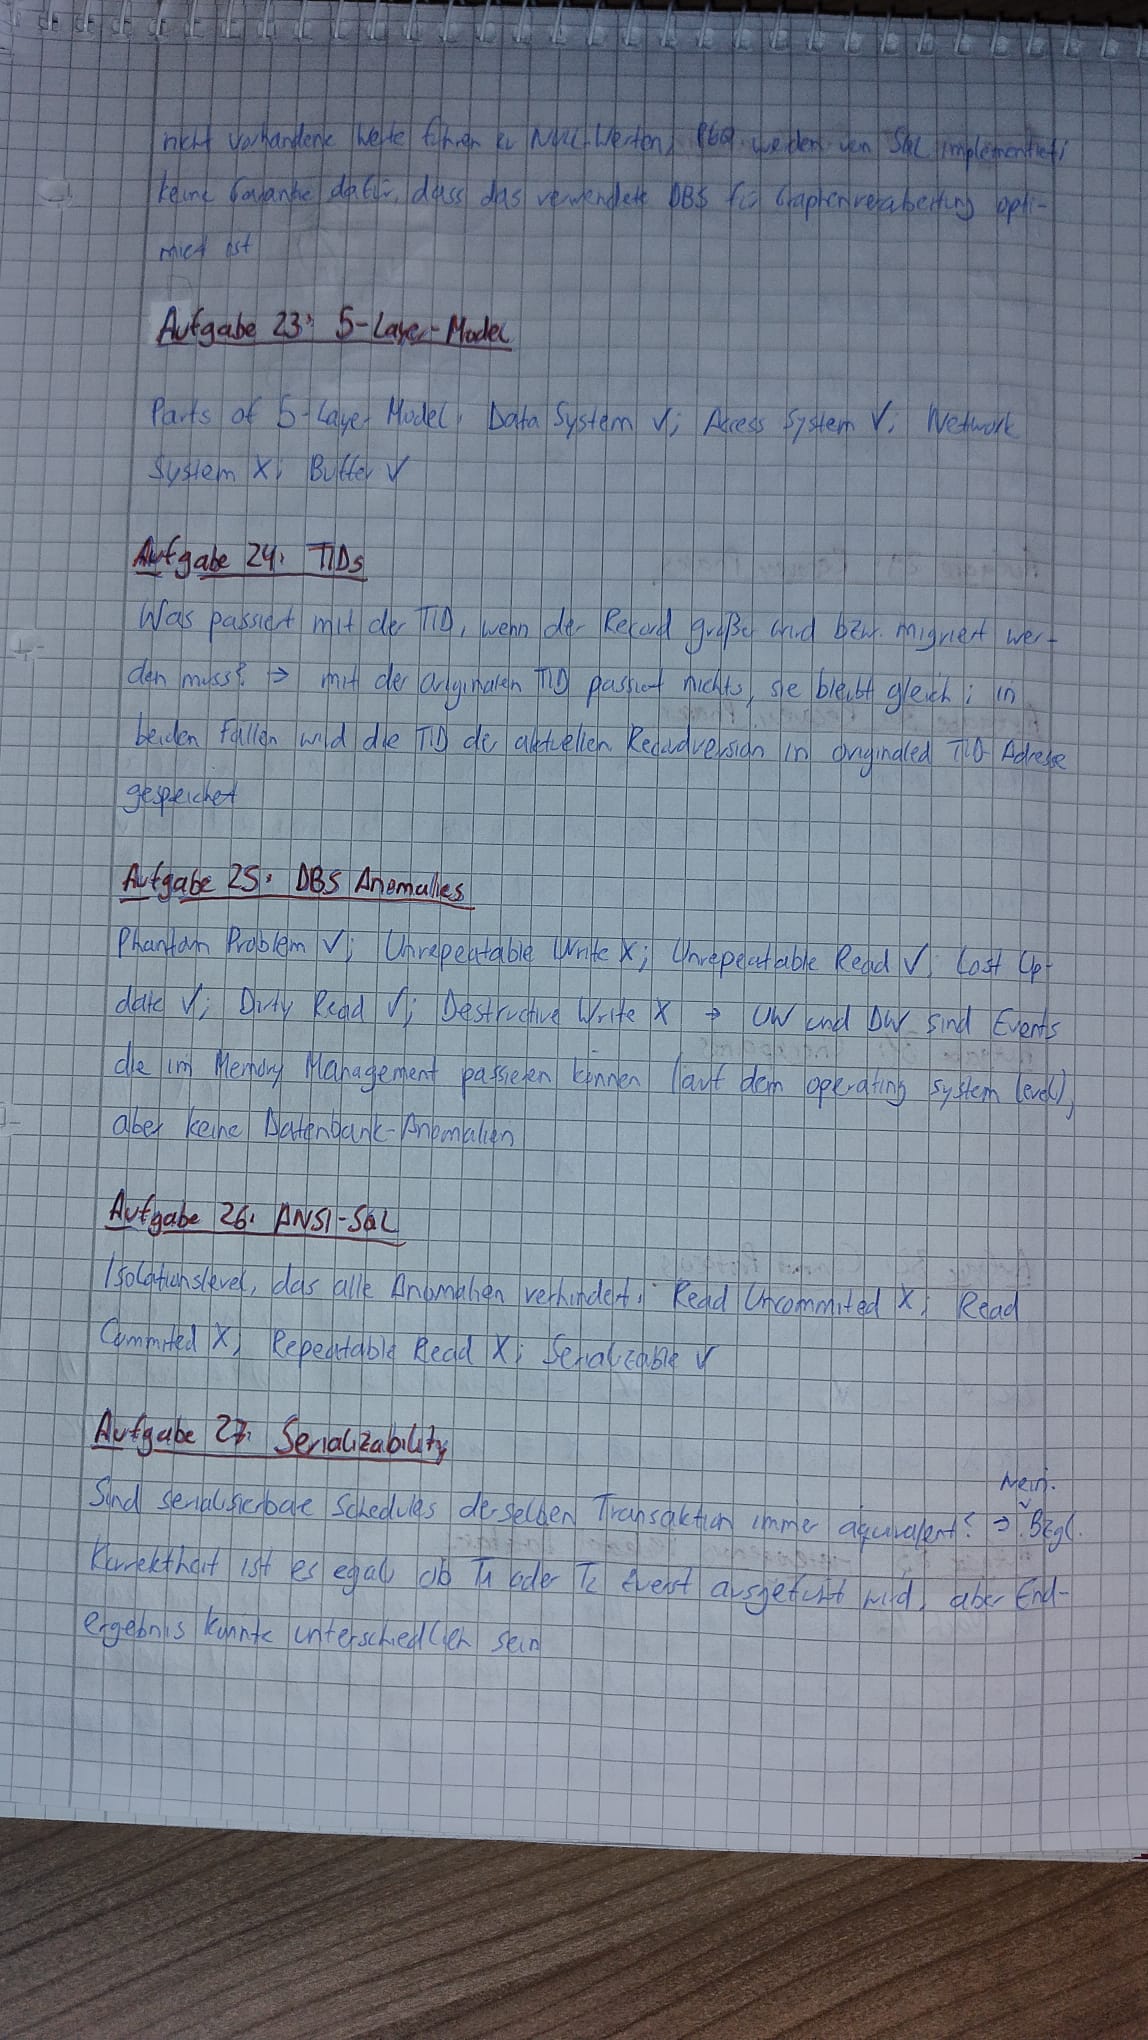 nicht vorhandene Werte führen zu Null-Werten; PGQ werden von SQL implementiert;
keine Garantie dafür, dass das verwendete DBS für Graphenverarbeitung opti-
miert ist
Aufgabe 23: 5-Layer-Model
Parts of 5-Layer Model: Data System ✓; Access System ✓; Network
System X; Buffer ✓
Aufgabe 24: TIDs
Was passiert mit der TID, wenn der Record größer wird bzw. migriert wer-
den muss? → mit der originalen TID passiert nichts, sie bleibt gleich; in
beiden Fällen wird die TID der aktuellen Recordversion in originaled TID Adresse
gespeichert
Aufgabe 25: DBS Anomalies
Phantom Problem ✓; Unrepeatable Write X; Unrepeatable Read ✓; Lost Up-
date ✓; Dirty Read ✓; Destructive Write X → UW und DW sind Events
die im Memory Management passieren können (auf dem operating system level),
aber keine Datenbank-Anomalien
Aufgabe 26: ANSI-SQL
Isolationslevel, das alle Anomalien verhindert: Read Uncommited X; Read
Commited X; Repeatable Read X; Serializable ✓
Aufgabe 27: Serializability
Nein.
Sind serialisierbare Schedules derselben Transaktion immer äquivalent? → Bzgl.
Korrektheit ist es egal, ob T1 oder T2 zuerst ausgeführt wird, aber End-
ergebnis könnte unterschiedlich sein